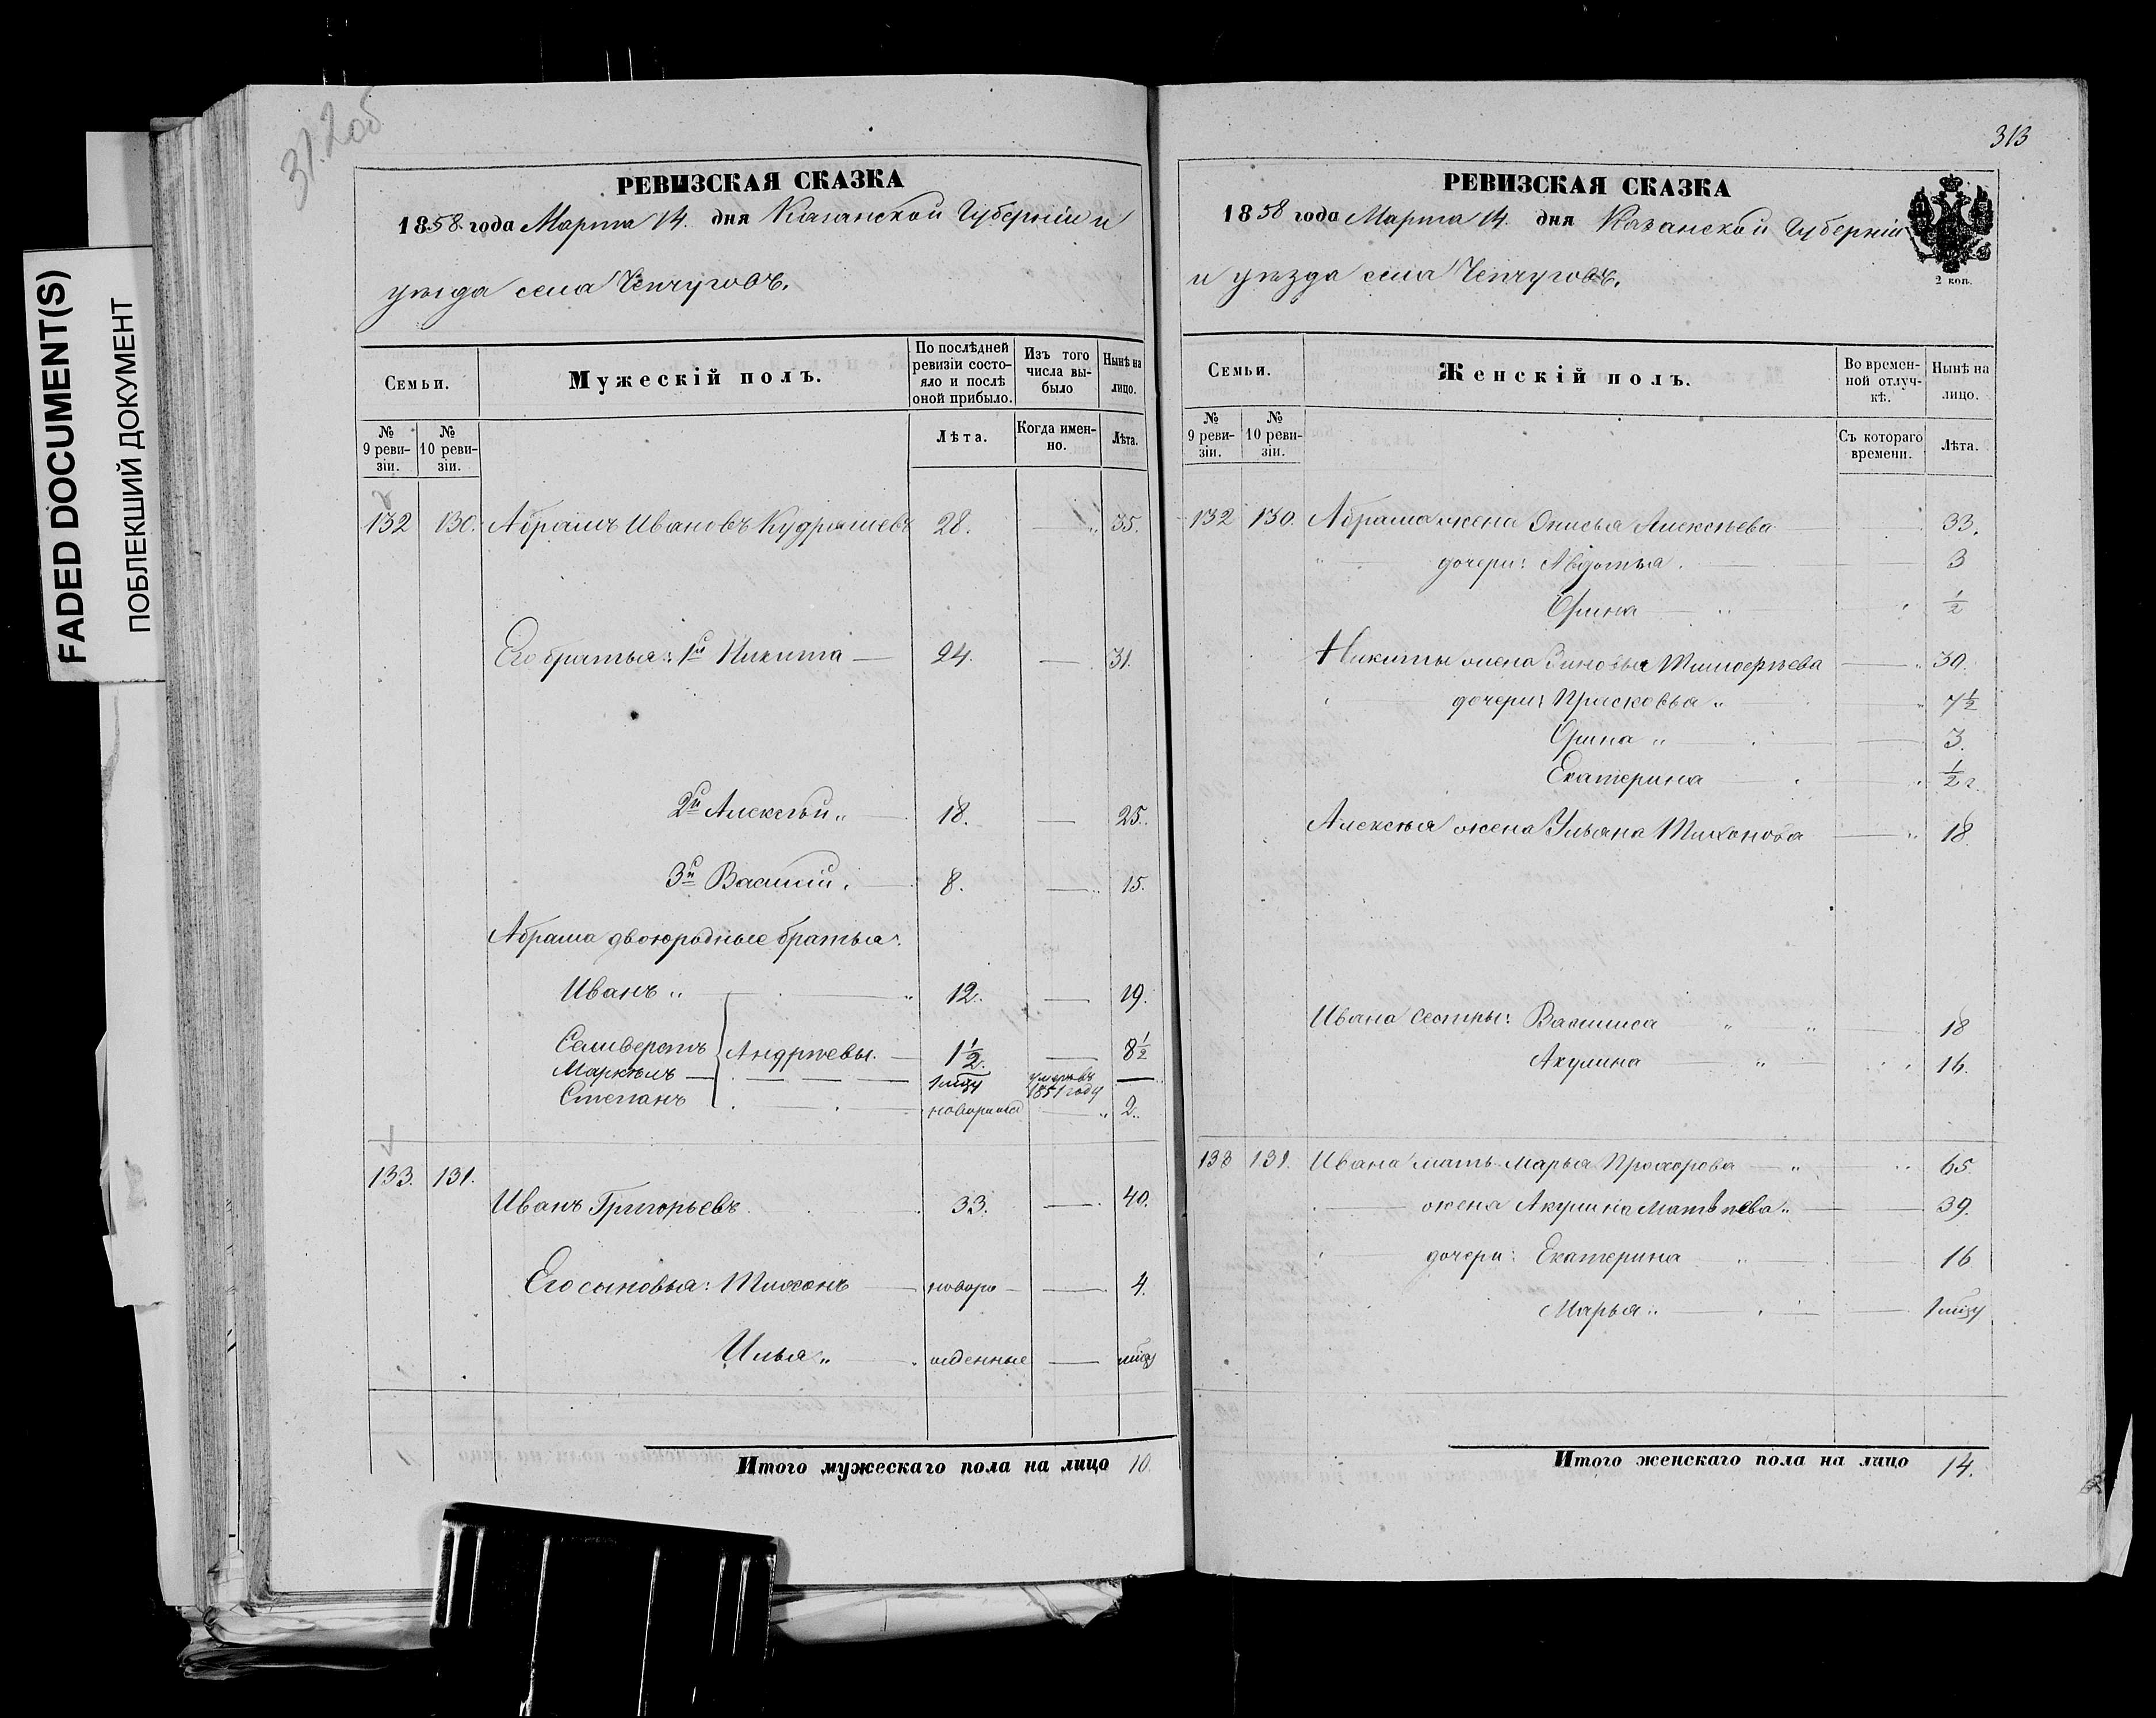 FADED DOCUMENT(S)
ПОБЛЕКШИЙ ДОКУМЕНТ
312об
РЕВИЗСКАЯ СКАЗКА
1858. года Марта 14. дня Казанской Губерніи и
уѣзда села Чепчуговъ.
Семьи.
Мужескій полъ.
По послѣдней ревизіи состояло и послѣ оной прибыло.
Изъ того числа выбыло
Нынѣ на лицо.
№ 9 ревизіи.
№ 10 ревизіи.
Лѣта.
Когда именно.
Лѣта.
132 130. Абрамъ Ивановъ Кудряшевъ 28. — 35.
Его братья: 1й Никита — 24. — 31.
2й Алексѣй „ 18. — 25.
3й Василій. 8. — 15.
Абрама двоюродные братья:
Иванъ „ 12. — 19.
Селиверстъ Андрѣевы. — 1½. — 8½
Маркелъ — 1 мцу умеръ въ 1851 году —
Степанъ новорожд „ 2.
133. 131.
Иванъ Григорьевъ. 33. — 40.
Его сыновья: Тихонъ — новоро — 4.
Илья „ — жденные — мцу
Итого мужескаго пола на лицо 10.
313
РЕВИЗСКАЯ СКАЗКА
1858 года Марта 14. дня Казанской Губерніи
и уѣзда села Чепчуговъ.
2 коп.
Семьи.
Женскій полъ.
Во временной отлучкѣ.
Нынѣ на лицо.
№ 9 ревизіи.
№ 10 ревизіи.
Съ котораго времени.
Лѣта.
132 130. Абрама жена Онисья Алексѣева 33.
дочери: Авдотья. 3
Орина ½
Никиты жена Зиновья Тимоѳѣева — 30.
дочери: Прасковья „ 7½
Орина „ 3.
Екатерина ½ г.
Алексѣя жена Ульяна Тихонова — 18.
Ивана сестры: Василиса 18
Акулина 16.
133 131. Ивана мать Марья Прохорова — „ 65.
жена Акулина Матвѣева „ — 39.
дочери: Екатерина 16
Марья „ — 1 мцу
Итого женскаго пола на лицо 14.